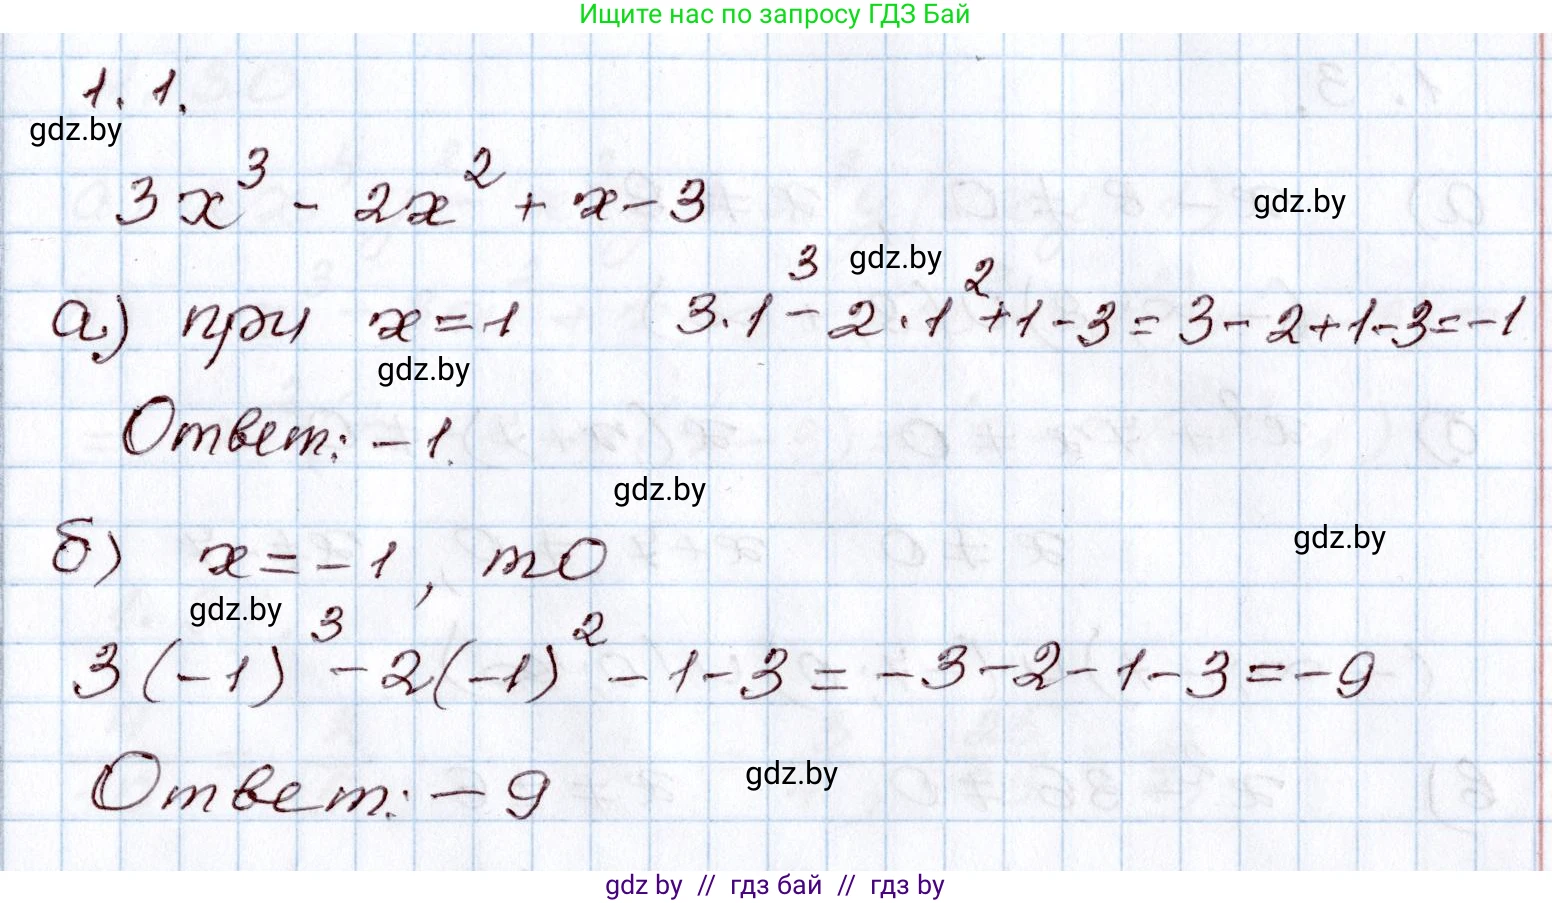 Ищите нас по запросу ГДЗ Бай
1. 1.
gdz.by
3x³ - 2x² + x - 3
gdz.by
gdz.by
а) при x = 1 3·1³ - 2·1² + 1 - 3 = 3 - 2 + 1 - 3 = -1
gdz.by
Ответ: -1.
gdz.by
gdz.by
б) x = -1, то
gdz.by
3(-1)³ - 2(-1)² - 1 - 3 = -3 - 2 - 1 - 3 = -9
gdz.by
Ответ: -9
gdz by // гдз бай // гдз by